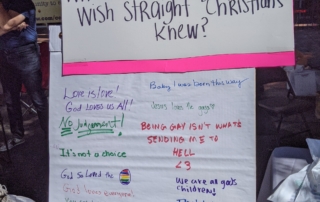 Wish straight "Christians
Knew?
Love is love!
God loves us All!
No Judgement!
It's not a choice
God So Loved the
God loves everyone
Baby I was born this way
Jesus loves the gays
BEING GAY ISN'T WHAT'S
SENDING ME TO
HELL
<3
We are all gods
children!